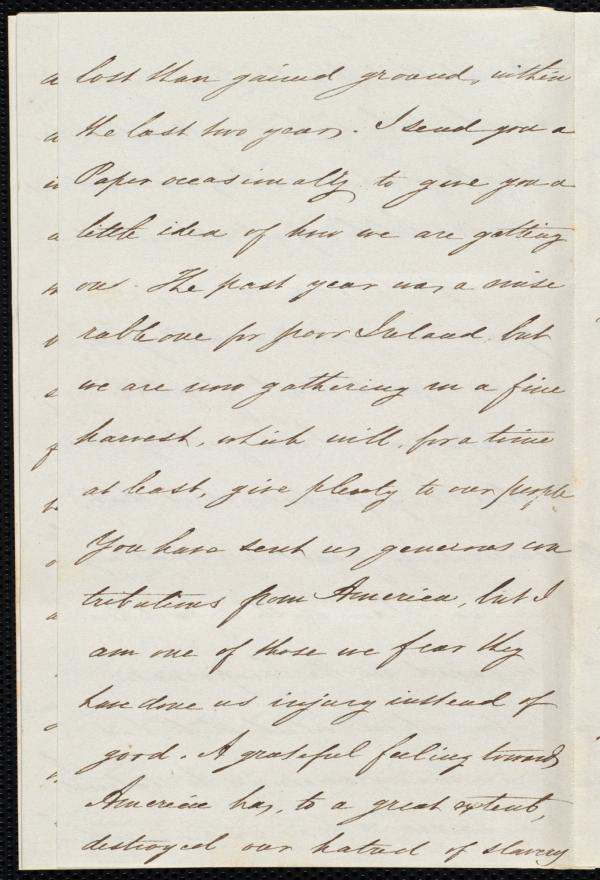 lost than gained ground, within
the last two years. I send you a
Paper occasionally to give you a
little idea of how we are getting
on. The past year was a mise
rable one for poor Ireland but
we are now gathering in a fine
harvest, which will, for a time
at least, give plenty to our people
You have sent us generous con
tributions from America, but I
am one of those we fear they
have done us injury instead of
good. A grateful feeling towards
America has, to a great extent,
destroyed our hatred of slavery